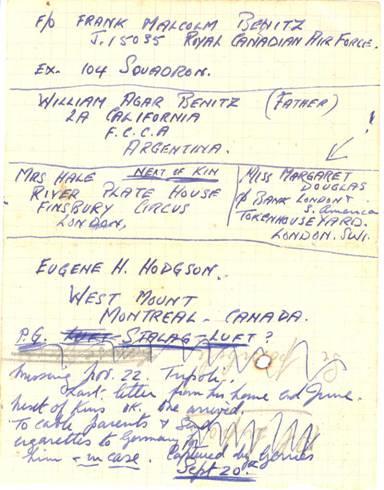 F/O FRANK MALCOLM BENITZ
J.15035 ROYAL CANADIAN AIR FORCE.
EX. 104 SQUADRON.
WILLIAM AGAR BENITZ (FATHER)
LA CALIFORNIA
F.C.C.A
ARGENTINA.
MRS HALE NEXT OF KIN
RIVER PLATE HOUSE
FINSBURY CIRCUS
LONDON,
MISS MARGARET
DOUGLAS
BANK LONDON &
S. America
TOKENHOUSE YARD.
LONDON. SW1.
EUGENE H. HODGSON.
WEST MOUNT
MONTREAL - CANADA.
P.G. LUFT STALAG-LUFT?
Missing Nov. 22 Tripoli.
Last letter from his home end June.
Next of Kins OK. One arrived.
To cable parents & Send
cigarettes to Germany for
him - in case. Captured by Gerries
Sept 20